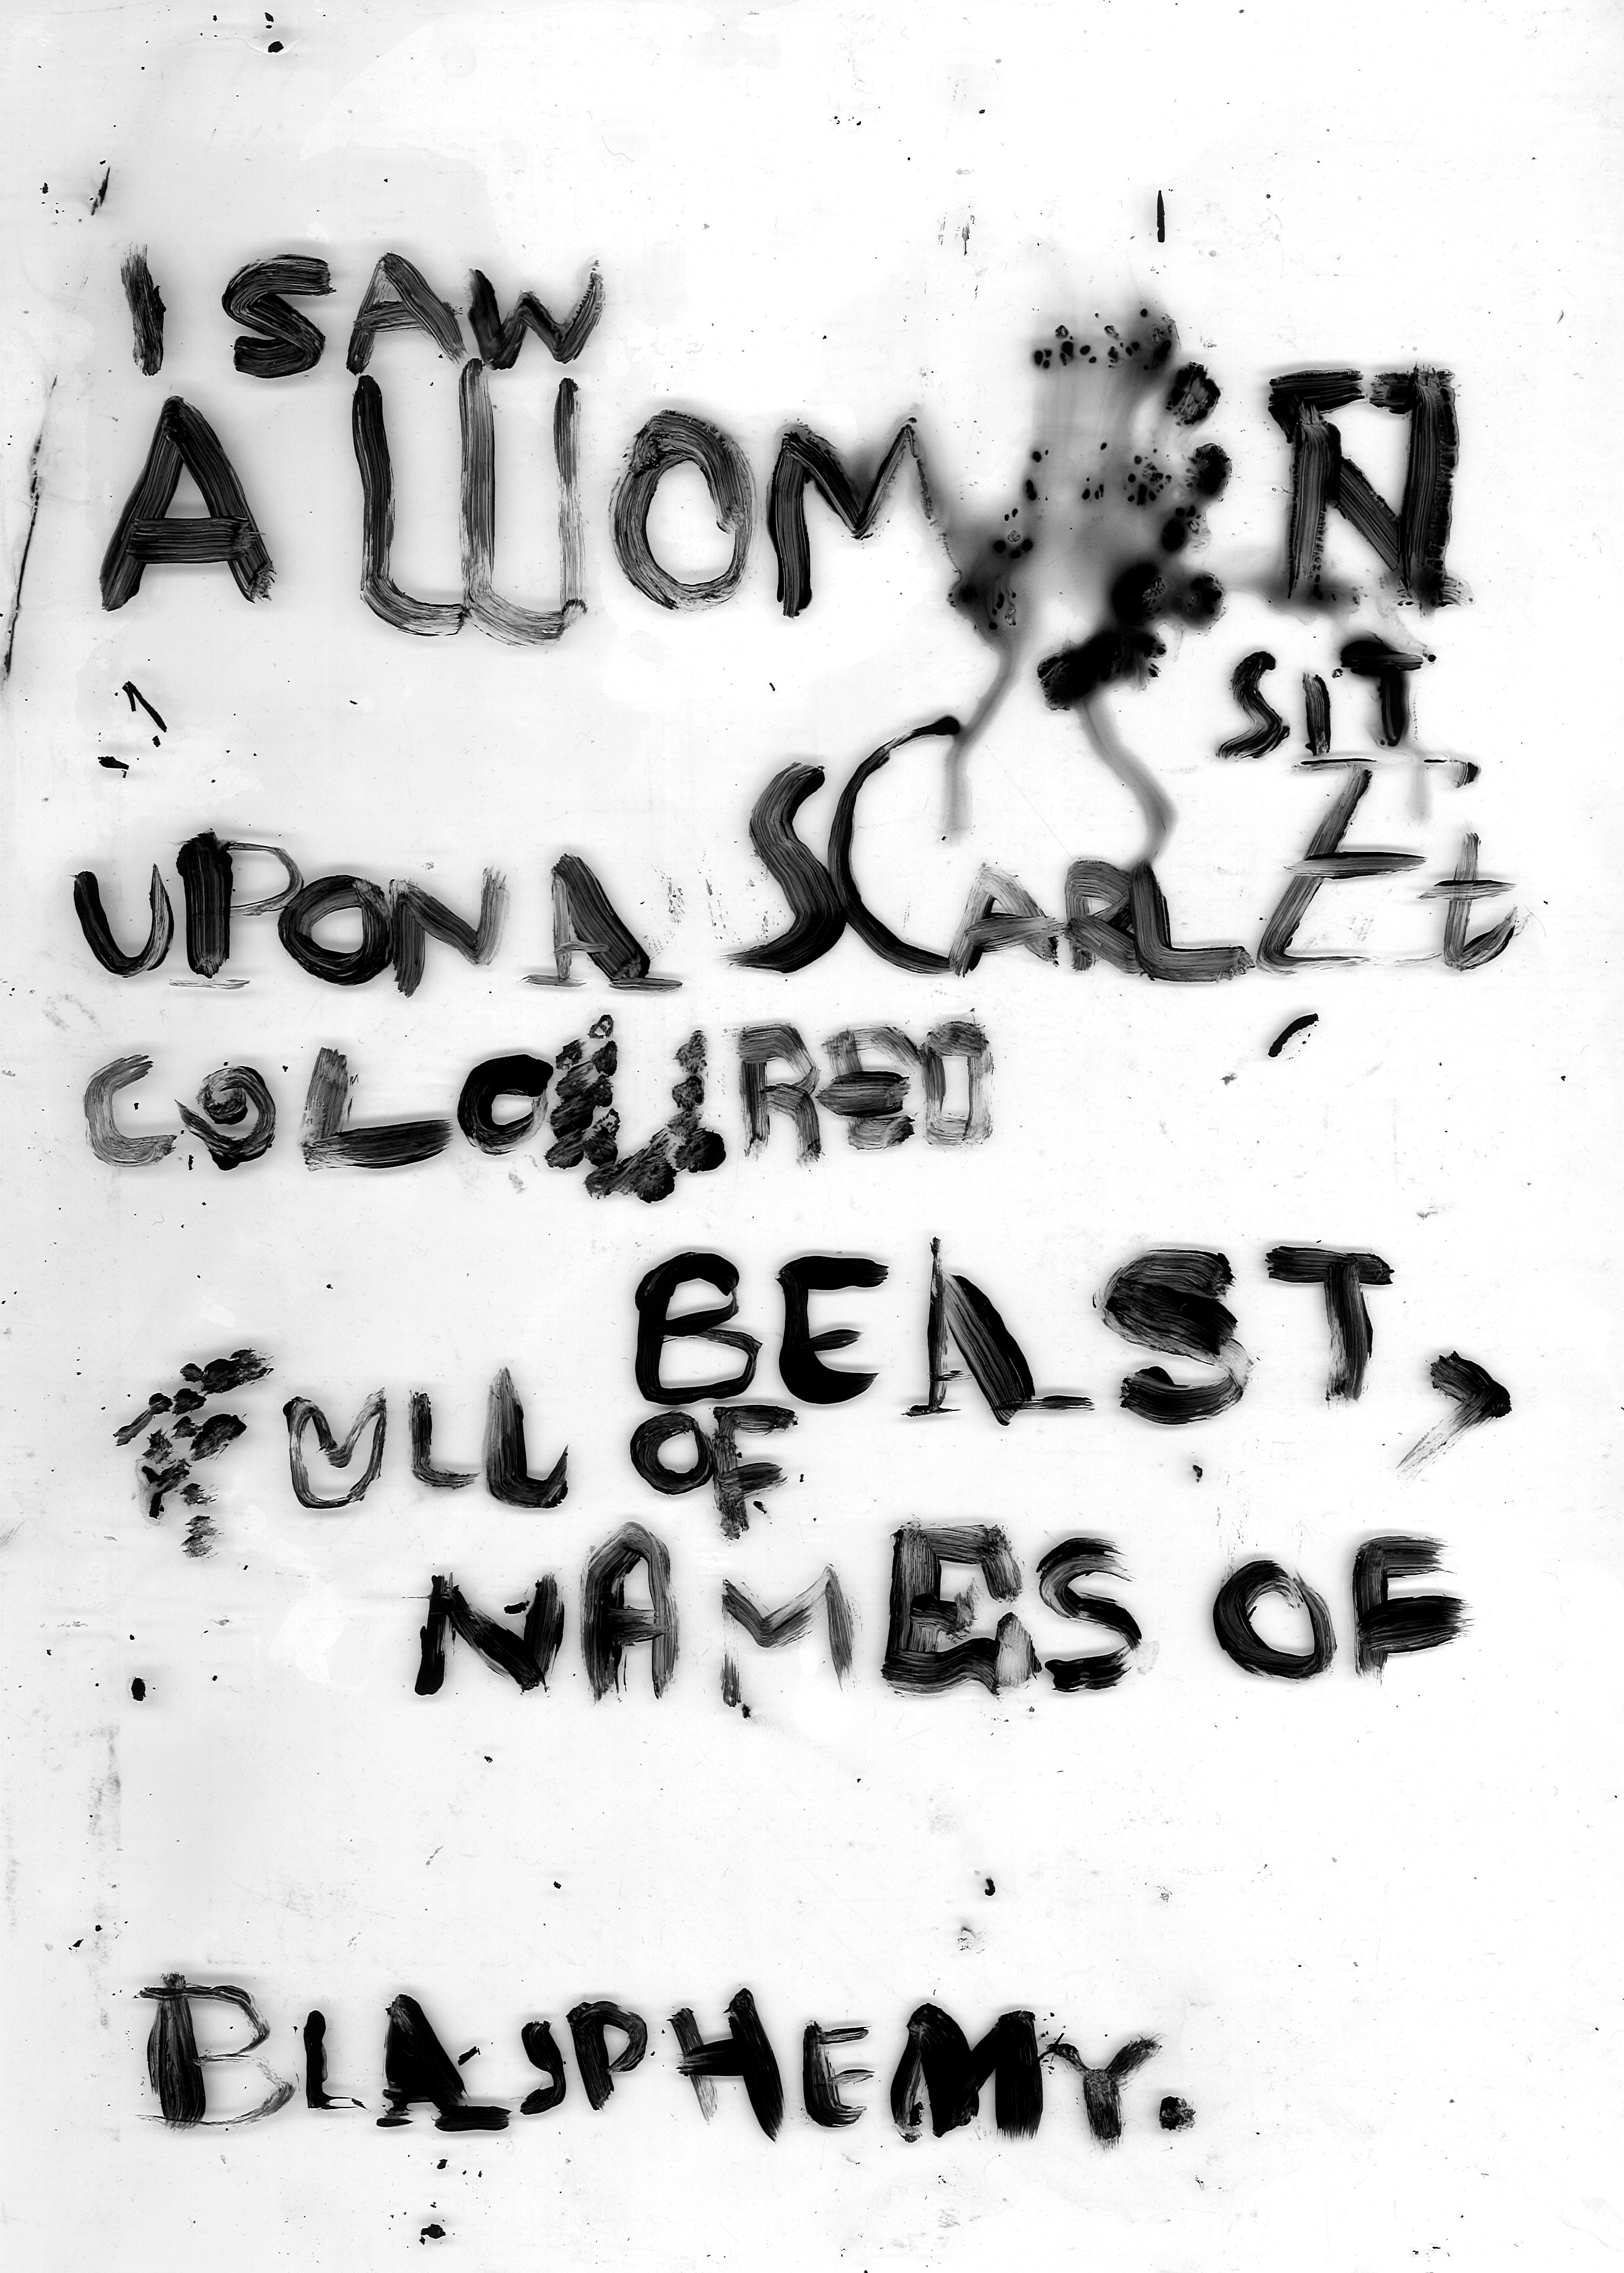 I SAW
A WOMAN
SIT
UPON A SCARLEt
COLOURED
BEAST,
FULL OF
NAMES OF
BLASPHEMY.